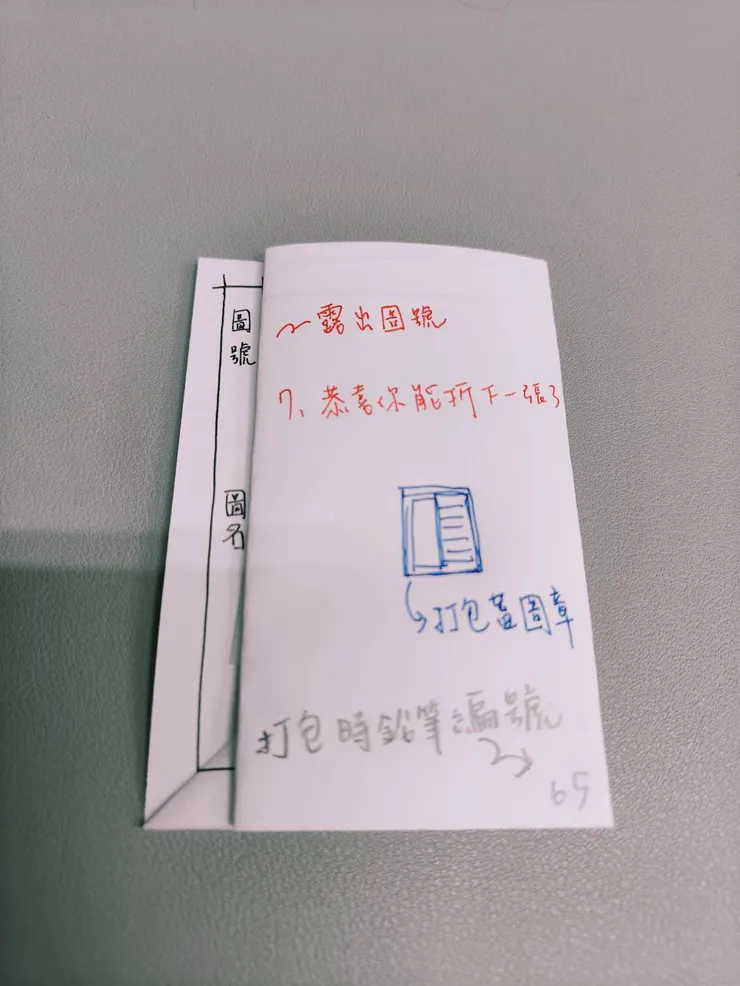 圖號
圖名
～露出圖號
7、恭喜你能折下一張了
打包蓋圖章
打包時鉛筆編號
65